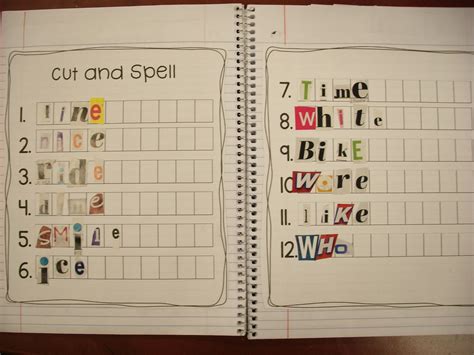 Cut and Spell
1. line
2. nice
3. ride
4. dime
5. SMiLe
6. ice
7. Time
8. White
9. BiKE
10. Wore
11. liKe
12. WHo